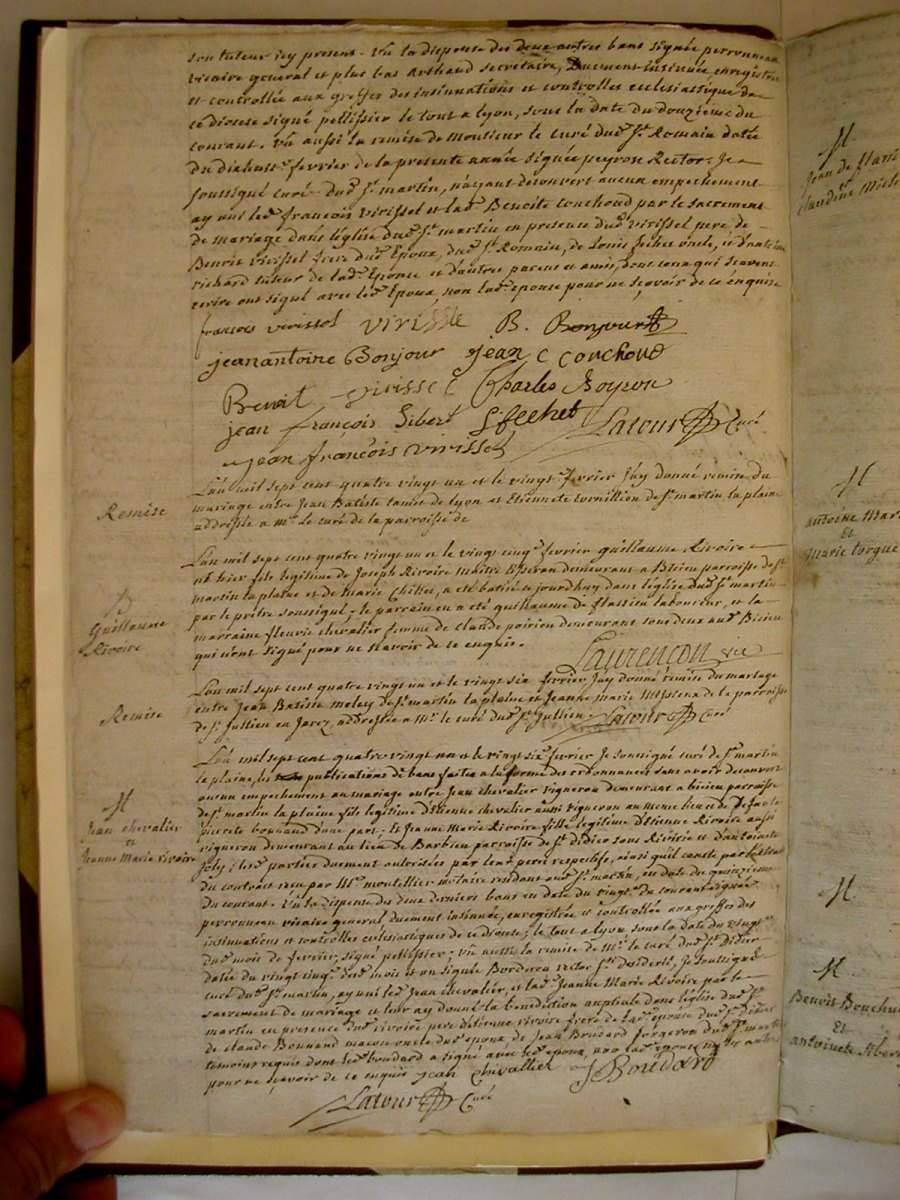 son tuteur icy present. Vu la dispense des deux autres bans signée perronneau
vicaire general et plus bas Arthaud secretaire, Duement insinuée, enregistrée
et controllée aux greffes des insinuations et controlles eclesiastique de
ce diocese signé pellissier le tout a lyon, sous la date du douzieme du
courant. Vu aussi la remise de Monsieur le curé dud. St. Romain datée
du dixhuit fevrier de la presente année signée peyron Rector. Je
soussigné curé dud. St. martin, n'ayant découvert aucun empechement
ay uni led. françois virissel et lad. Benoite Couchoud par le sacrement
de mariage dans l'église dud. St. martin en presence dud. virissel pere de
Benoit virissel frere dud. Epoux, dud. St. Romain, de Louis fechet oncle, et d'antoine
richard tuteur de lad. Epouse et d'autres parent et amis, dont ceux qui scavent
ecrire ont signé avec led. Epoux, non lad. epouse pour ne scavoir de ce enquise
françois virissel VIRISSLE B. Bonjour
jeanantoine Bonjour jean C couchoud
Benoit virissel Charles Boyron
jean françois Sibert L fechet Latour Curé
jean françois virissel
Remise
L'an mil sept cent quatre vingt un et le vingt fevrier J'ay donné remise du
mariage entre Jean Batiste de lyon et Etiennete cornillion de St. martin la plaine
addressée a Mr. Le curé de la parroisse de
B
Guillaume
Rivoire
L'an mil sept cent quatre vingt un et le vingt cinq fevrier guillaume Rivoire
né hier fils legitime de Joseph Rivoire Maitre demeurant a Bissieu parroisse de St.
martin la plaine et de Marie a été batisé ce jourdhuy dans l'eglise dud. St. martin
par le prêtre soussigné. le parrain en a été guillaume de flassieu laboureur, et la
marraine fleurie chevalier femme de claude poirieu demeurans tous deux aud. Bissieu
qui n'ont signé pour ne scavoir de ce enquis.
Laurençon vic
Remise
L'an mil sept cent quatre vingt un et le vingt six fevrier J'ay donné remise du mariage
entre Jean Batiste meley de St. martin la plaine et Jeanne marie de la parroisse
de St. Jullien en Jarez, addressée a Mr. le curé dud. St. Jullien. Latour Curé
M
Jean chevalier
et
Jeanne Marie rivoire
L'an mil sept cent quatre vingt un et le vingt six fevrier Je soussigné curé de St. martin
la plaine, les publications de bans faites a la forme des ordonnances sans avoir découvert
aucun empechement au mariage entre Jean chevalier vigneron demeurant a bissieu parroisse
de St. martin la plaine fils legitime d'Etienne chevalier aussi vigneron au meme lieu et de defunte
pierrete bonnand d'une part. Et Jeanne Marie Rivoire fille legitime d'Etienne Rivoire aussi
vigneron demeurant au lieu de Barbieu parroisse de St. didier sous Riverie et d'antoinete
Joly; lesd. parties duement autorisées par leur peres respectifs, ainsi qu'il conste par
du contract recu par Mr. montellier notaire residant aud. St. martin, en date du quinzieme
du courant. Vu la dispense des deux derniers bans en date du vingt du courant signée
perronneau vicaire general, duement insinuée, enregistrée et controllée aux greffes des
insinuations et controlles eclésiastiques de ce diocese; le tout a lyon sous la date du vingt
dud. mois de fevrier, signé pellissier; vu aussi la remise de Mr. le curé dud. St. Didier
datée du vingt cinq desd. mois et an signée Borderon rector Sti. desiderii, Je soussigné
curé dud. St. martin, ay uni led. Jean chevalier, et lad. Jeanne Marie Rivoire par le
sacrement de mariage et leur ay donné la benediction nuptiale dans l'église dud. St.
martin en presence dud. rivoire pere d'etienne rivoire frere de lad. epouse dud. St. didier
de claude Bonnand macon oncle dud. epoux, de Jean Boudard forgeron dud. St. martin
temoins requis dont led. boudard a signé avec led. epoux, non lad. epouse ny les autres
pour ne scavoir de ce enquis jean chevallier J Boudard
Latour Curé
M
Jean de
claudine
M
antoine
Et
Marie
M
M
Benoit
Et
antoinete